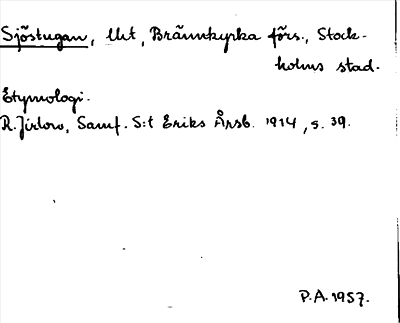 Sjöstugan, lht, Brännkyrka förs., Stock-
holms stad.
Etymologi.
R. Jirlow, Samf. S:t Eriks Årsb. 1914, s. 39.
P.A. 1957.